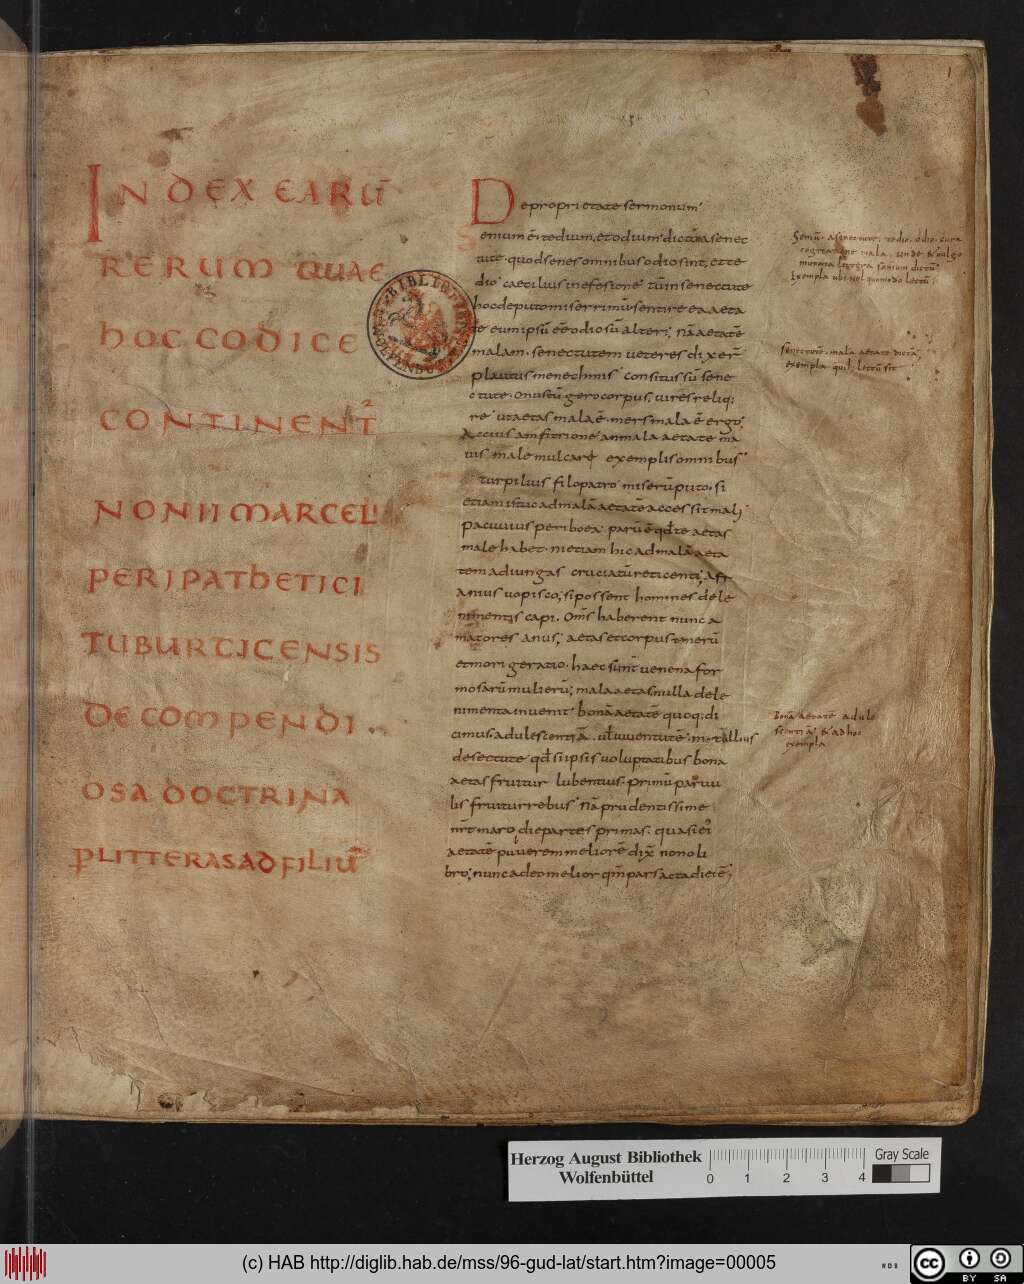 INDEX EARŪ
RERUM QUAE
HOC CODICE
CONTINENT̄
NONII MARCELLI
PERIPATHETICI
TUBURTICENSIS
DE COMPENDI
OSA DOCTRINA
P̄ LITTERAS AD FILIŪ
De proprietate sermonum
enium ē tedium, et odium dictū a senec
tute quod senes omnibus odio sint, et te
dio caecilius in efesione tum senectute
hoc deputo miserrimū sentire ea aeta
te eum ipsū eē odiosū alteri; nā aetatē
malam senectutem veteres dixer̄
plautus menechmis consitus sū sene
ctute onustū gero corpus, vires reliq;
re ut aetas mala ē mers mala ē ergo;
Accius amfitrione an mala aetate ma
vis male mulcare exemplis omnibus
turpilius filopatro miserū puto si
etiam istuc ad malā aetatē accessit mali
pacuvius periboea parū ē qđ te aetas
male habet ni etiam hic ad malā aeta
tem adiungas cruciatū reticenti; afr
anius vopisco; si possent homines dele
nimentis capi. Om̄s haberent nunc a
matores anus; aetas et corpus tenerū
et morigeratio. haec sunt venena for
mosarū mulierū; mala aetas nulla dele
nimenta invenit bonā aetatē quoq; di
cimus adulescentiā vl̄ iuventutē; m tullius
de senectute qđ si ipsis voluptatibus bona
aetas fruitur lubentius primū parvu
lis fruitur rebus nā prudentissime
die partes primas quasi ei
aetatē meliorē dix̄ non oli
bro; nunc adeo melior qm̄ pars acta diei ē;
Senectutē mala aetate dictā,
exempla
Bona aetate adule
scentiā & ad hoc
exempla
1
Herzog August Bibliothek
Wolfenbüttel
0 1 2 3 4
Gray Scale
(c) HAB http://diglib.hab.de/mss/96-gud-lat/start.htm?image=00005
WDB
cc BY SA